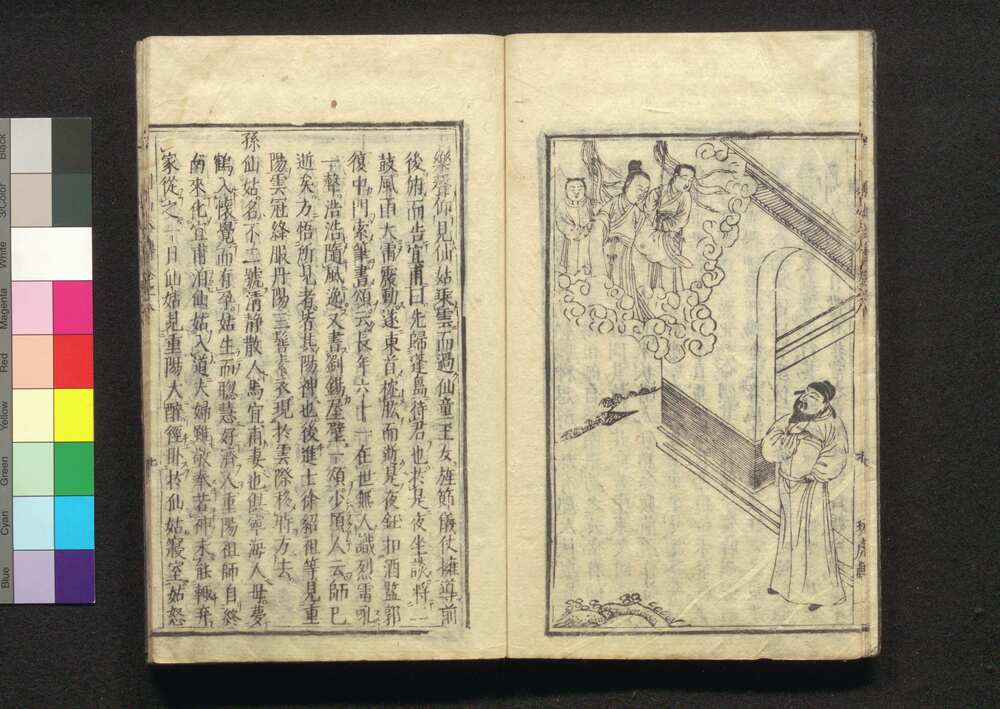 樂仰見仙姑乘雲而過仙童玉女旌節儀仗擁導前
後俯而告宜甫曰先歸蓬島待君也於是夜坐談將二
鼓風雨大雷震動遂東首枕肱而逝是夜鈺扣酒監郭
復中門索筆書頌云長年六十一在世無人識烈雷吼
一聲浩浩隨風逸又書劉錫屋壁一頌少頃人云師已
逝矣方悟所見者皆其陽神也後進士徐紹祖等見重
陽雲冠絳服丹陽三髻素衣現於雲際移時方去
孫仙姑名不二號清静散人馬宜甫妻也俱寧海人母夢
鶴入懷覺而有孕姑生而聰慧好濟人重陽祖師自終
南來化宜甫洎仙姑入道夫婦雖敬奉若神未能輒弃
家從之一日仙姑見重陽大醉徑卧於仙姑寢室姑怒
Black
3/Color
White
Magenta
Red
Yellow
Green
Cyan
Blue